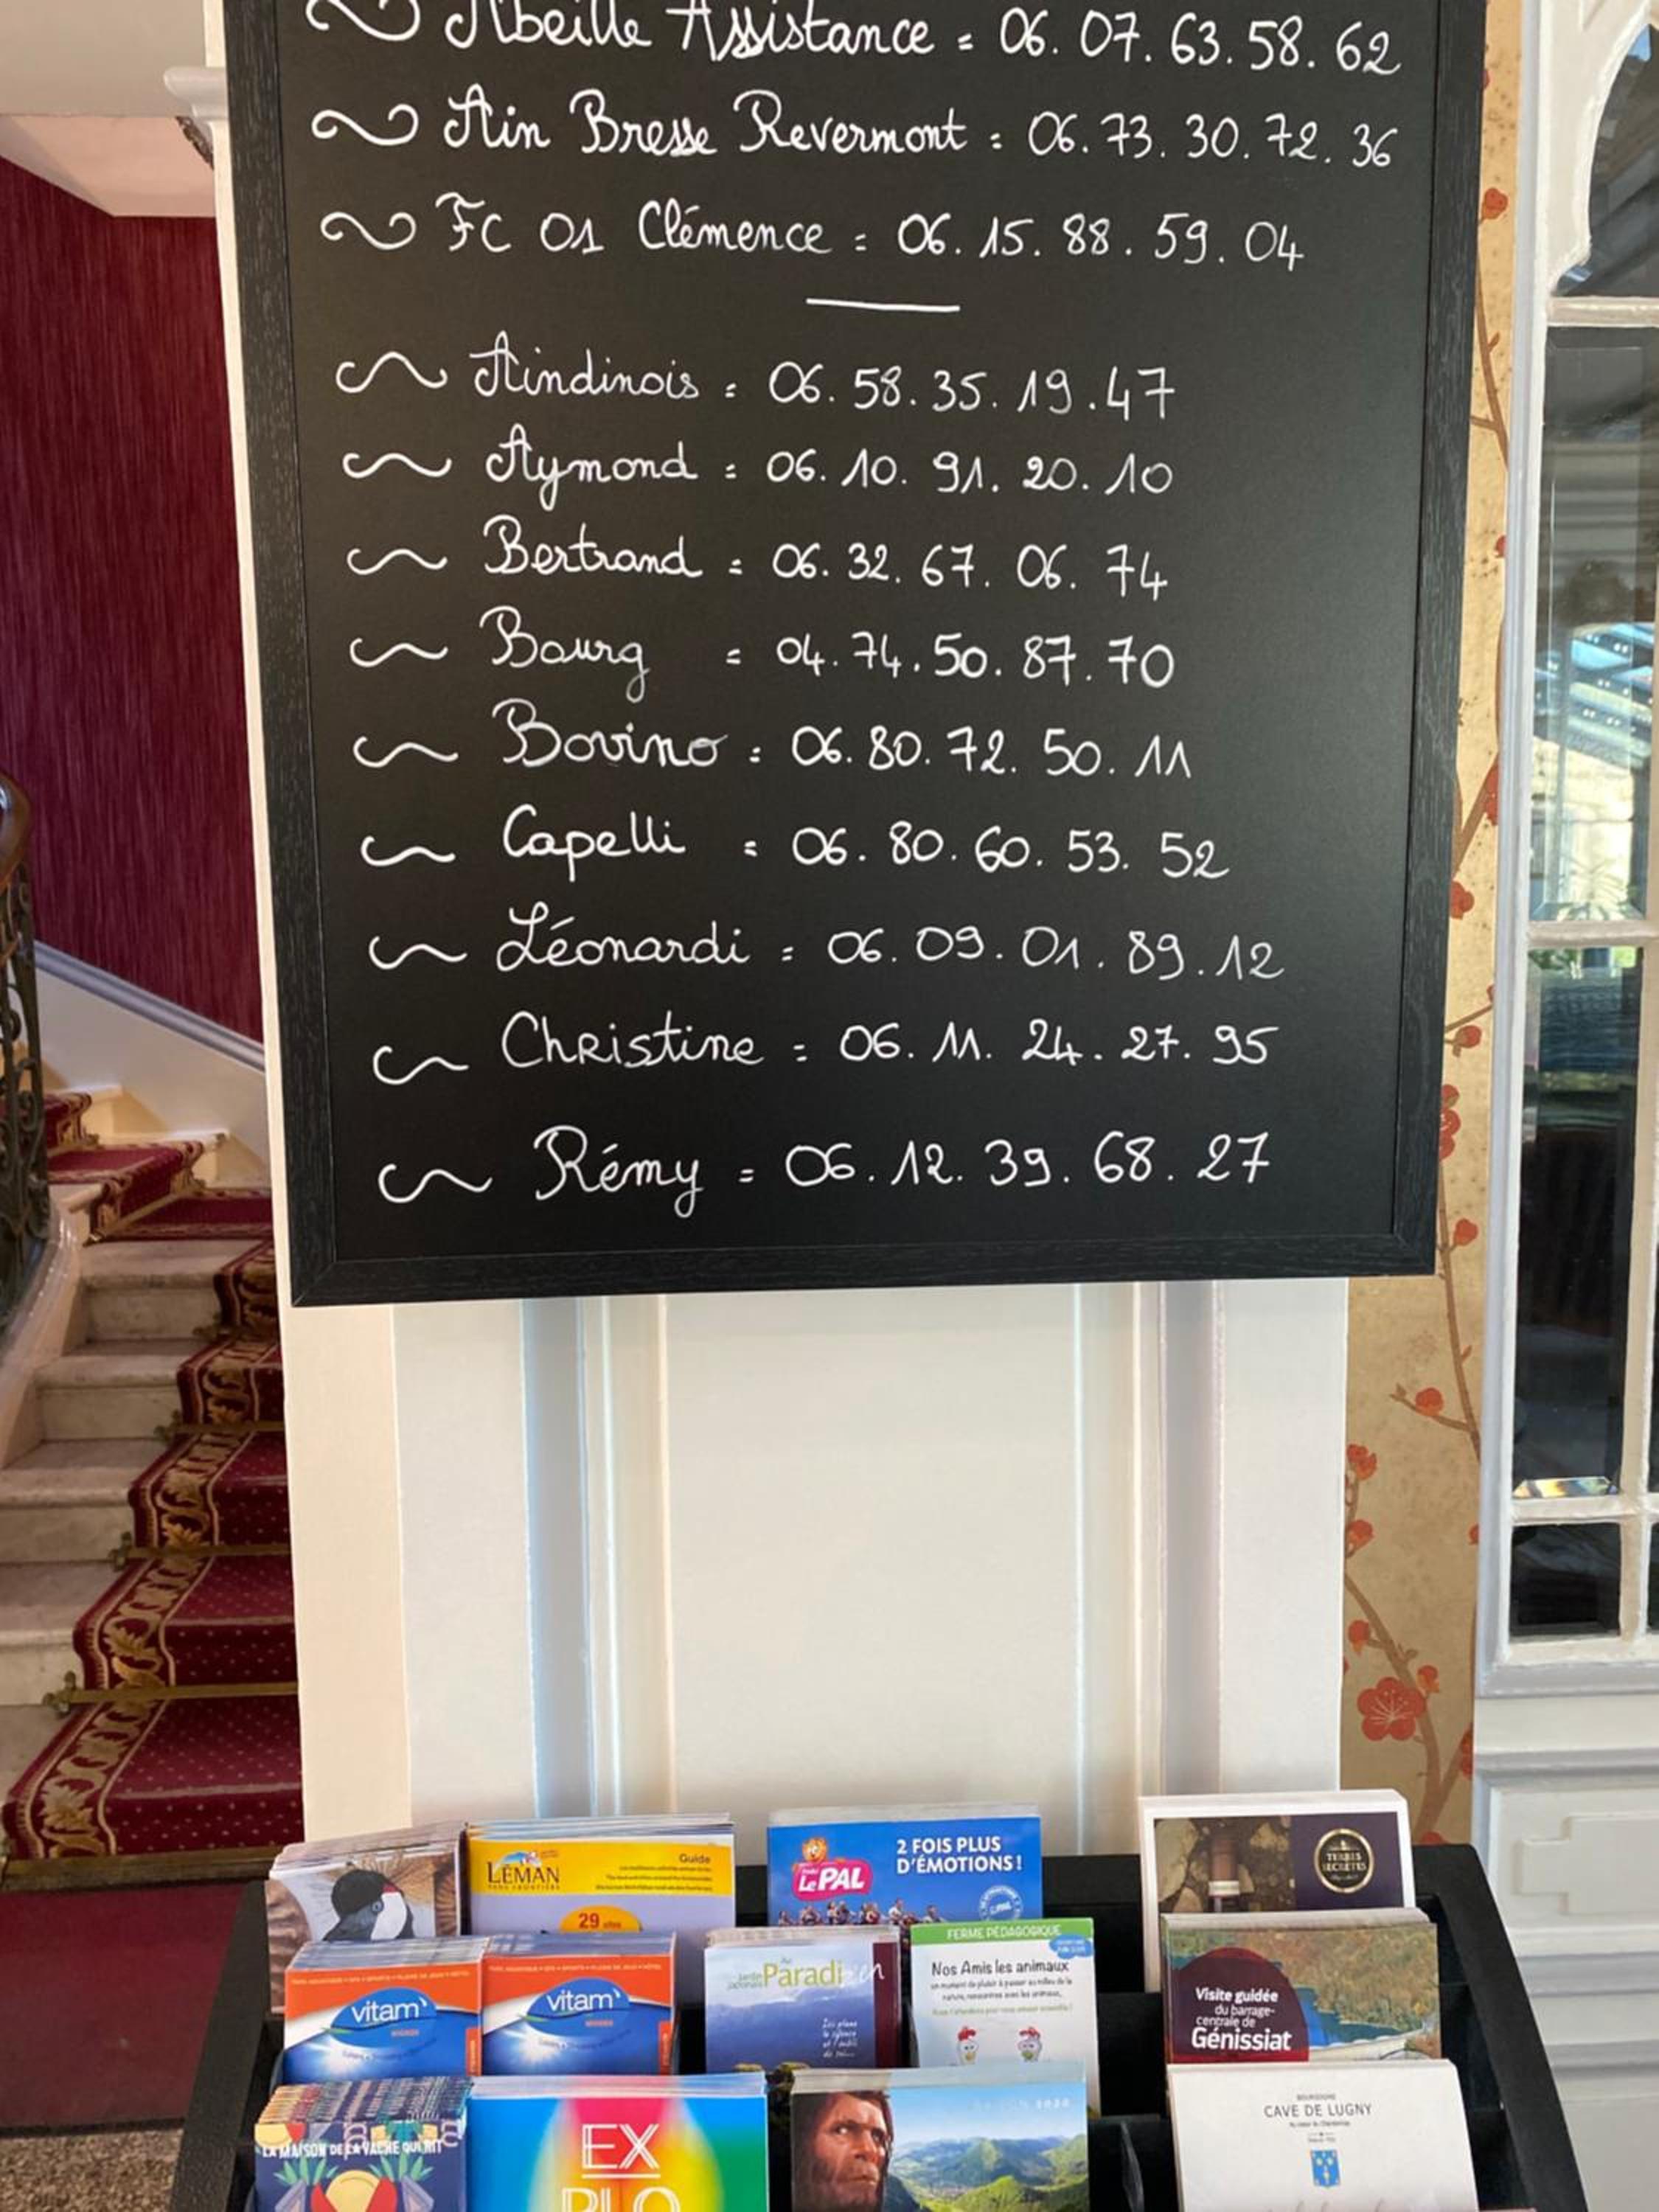 Abeille Assistance = 06. 07. 63. 58. 62
Ain Bresse Revermont = 06. 73. 30. 72. 36
FC 01 Clémence = 06. 15. 88. 59. 04
Aindinois = 06. 58. 35. 19. 47
Aymond = 06. 10. 91. 20. 10
Bertrand = 06. 32. 67. 06. 74
Bourg = 04. 74. 50. 87. 70
Bovino = 06. 80. 72. 50. 11
Capelli = 06. 80. 60. 53. 52
Léonardi = 06. 09. 01. 89. 12
Christine = 06. 11. 24. 27. 95
Rémy = 06. 12. 39. 68. 27
LÉMAN
SANS FRONTIÈRE
Guide
29 sites
Le PAL
2 FOIS PLUS
D'ÉMOTIONS !
TERRES
SECRÈTES
vitam
vitam
Jardin
Japonais
Zen
FERME PÉDAGOGIQUE
Nos Amis les animaux
Visite guidée
du barrage-
centrale de
Génissiat
LA MAISON DE LA VACHE QUI RIT
EX
PLO
BOURGOGNE
CAVE DE LUGNY